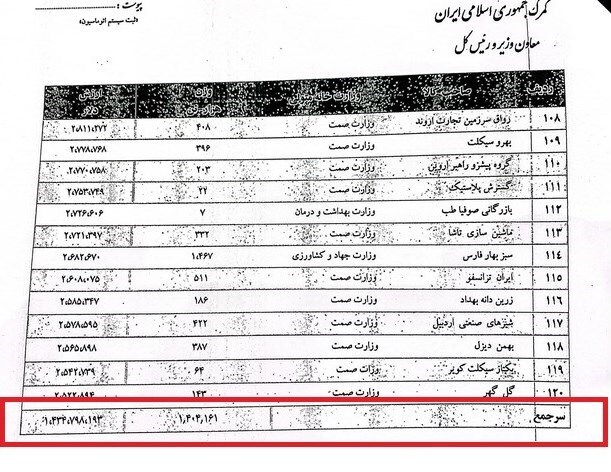 گمرک جمهوری اسلامی ایران
معاون وزیر و رئیس کل
پیوست :
«ثبت سیستم اتوماسیون»
ردیف صاحب کالا وزارت خانه وزن ارزش
۱۰۸ رواق سرزمین تجارت اروند وزارت صمت ۴۰۸ ۲،۸۱۱،۲۷۲
۱۰۹ بهرو سیکلت وزارت صمت ۳۹۶ ۲،۷۷۸،۷۶۸
۱۱۰ گروه پیشرو راهبر وزارت صمت ۲۰۳ ۲،۷۷۰،۷۵۸
۱۱۱ گسترش پلاستیک وزارت صمت ۲۲ ۲،۷۵۳،۷۴۹
۱۱۲ بازرگانی صوفیا طب وزارت بهداشت و درمان ۷ ۲،۷۲۶،۶۰۶
۱۱۳ ماشین سازی تاشا وزارت صمت ۳۳۲ ۲،۷۲۱،۳۹۷
۱۱۴ سبز بهار فارس وزارت جهاد و کشاورزی ۱،۴۶۷ ۲،۶۸۲،۶۷۰
۱۱۵ ایران ترانسفو وزارت صمت ۵۱۱ ۲،۶۰۸،۰۷۵
۱۱۶ زرین دانه بهداد وزارت صمت ۱۸۶ ۲،۵۸۵،۳۴۷
۱۱۷ شیرهای صنعتی اردبیل وزارت صمت ۴۲۲ ۲،۵۷۸،۵۹۵
۱۱۸ بهمن دیزل وزارت صمت ۳۸۷ ۲،۵۶۵،۸۹۸
۱۱۹ یکتاز سیکلت کویر وزارت صمت ۶۴ ۲،۵۴۲،۷۳۹
۱۲۰ گل گهر وزارت صمت ۱۴۳ ۲،۵۲۲،۸۹۴
سرجمع ۱،۴۰۴،۱۶۱ ۱،۴۳۴،۷۹۸،۱۹۳